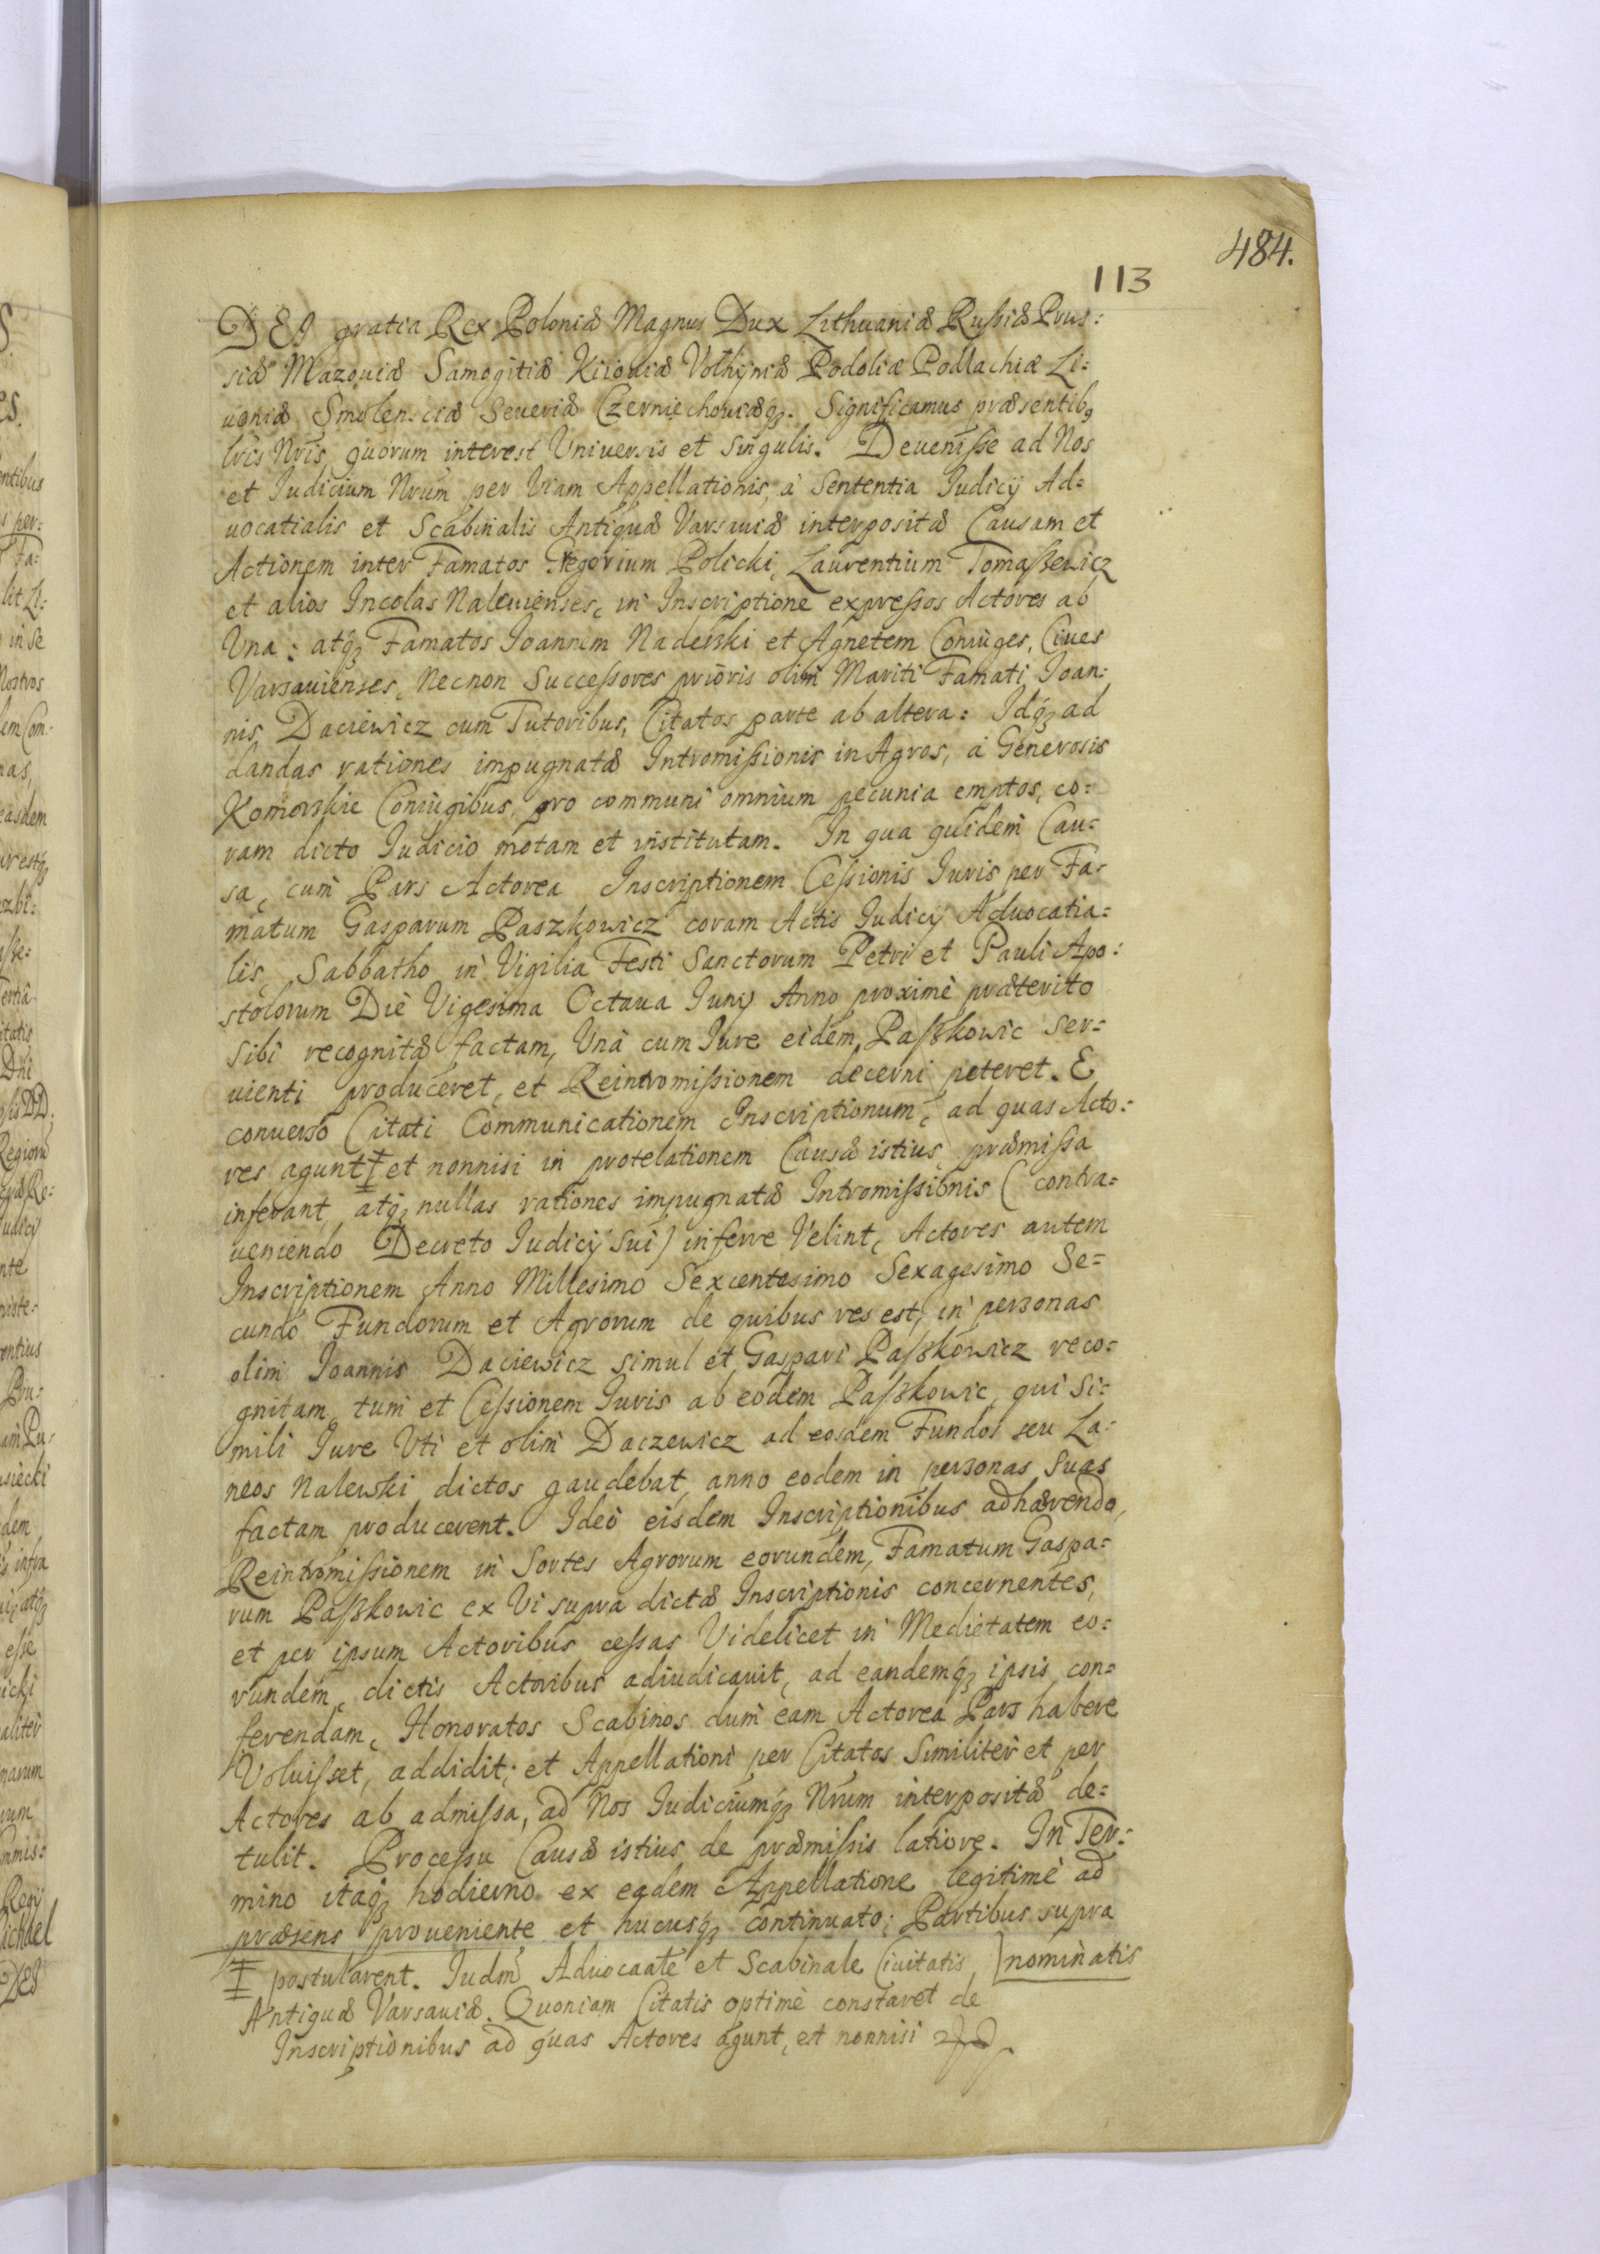 484.
113
DEI gratia Rex Poloniæ Magnus Dux Lithuaniæ Russiæ Prus:
siæ Mazouiæ Samogitiæ Kiiouiæ Volhyniæ Podoliæ Podlachiæ Li:
uoniæ Smolenciæ Seueriæ Czerniechouiæq3. Significamus præsentib9
lris Nris quorum interest Uniuersis et singulis. Deuenisse ad Nos
et Iudicium Nrum per Viam Appellationis, à Sententia Iudicij Ad=
uocatialis et Scabinalis Antiquæ Varsauiæ interpositæ Causam et
Actionem inter Famatos Gregorium Policki, Laurentium Tomaszewicz
et alios Incolas Naleuienses, in Inscriptione expressos Actores ab
Una: atq3 Famatos Ioannem Naderski et Agnetem Coniuges, Ciues
Varsauienses, Necnon Successores prioris olim Mariti Famati Ioan:
nis Daciewicz cum Tutoribus, Citatos parte ab altera: Idq3 ad
dandas rationes impugnatæ Intromissionis in Agros, à Generosis
Komorskie Coniugibus, pro communi omnium pecunia emptos, co=
ram dicto Iudicio motam et institutam. In qua quidem Cau:
sa, cum Pars Actorea Inscriptionem Cessionis Iuris per Fa:
matum Gasparum Paszkowicz coram Actis Iudicij Aduocatia=
lis, Sabbatho in Vigilia Festi Sanctorum Petri et Pauli Apo:
stolorum Die Vigesima Octaua Iunij Anno proximè præterito
sibi recognitæ factam, Unà cum Iure eidem Paszkowic ser=
uienti produceret, et Reintromissionem decerni peteret. E
conuerso Citati Communicationem Inscriptionum, ad quas Acto:
res agunt ‡ et nonnisi in protelationem Causæ istius, præmissa
inferant, atq3 nullas rationes impugnatæ Intromissionis (contra=
ueniendo Decreto Iudicij sui) inferre Velint, Actores autem
Inscriptionem Anno Millesimo Sexcentesimo Sexagesimo Se=
cundo Fundorum et Agrorum de quibus res est, in personas
olim Ioannis Daciewicz simul et Gaspari Paszkowicz reco=
gnitam, tum et Cessionem Iuris ab eodem Paszkowic, qui si:
mili Iure Uti et olim Daczewicz ad eosdem Fundos seu La:
neos Nalewski dictos gaudebat, anno eodem in personas suas
factam producerent. Ideò eisdem Inscriptionibus adhærendo,
Reintromissionem in Sortes Agrorum eorundem, Famatum Gaspa=
rum Paszkowic ex Vi supra dictæ Inscriptionis concernentes,
et per ipsum Actoribus cessas Videlicet in Medietatem eo=
rundem, dictis Actoribus adiudicauit, ad eandemq3 ipsis con=
ferendam, Honoratos Scabinos dum eam Actorea Pars habere
Voluisset, addidit; et Appellationi per Citatos Similiter et per
Actores ab admissa, ad Nos Iudiciumq3 Nrum interpositæ de=
tulit. Processu Causæ istius de præmissis latiore. In Ter=
mino itaq3 hodierno ex eadem Appellatione legitimè ad
præsens proueniente et hucusq3 continuato; Partibus supra
nominatis
‡ postularent. Iudm Aduocaale et Scabinale Ciuitatis
Antiquæ Varsauiæ. Quoniam Citatis optimè constaret de
Inscriptionibus ad quas Actores agunt, et nonnisi